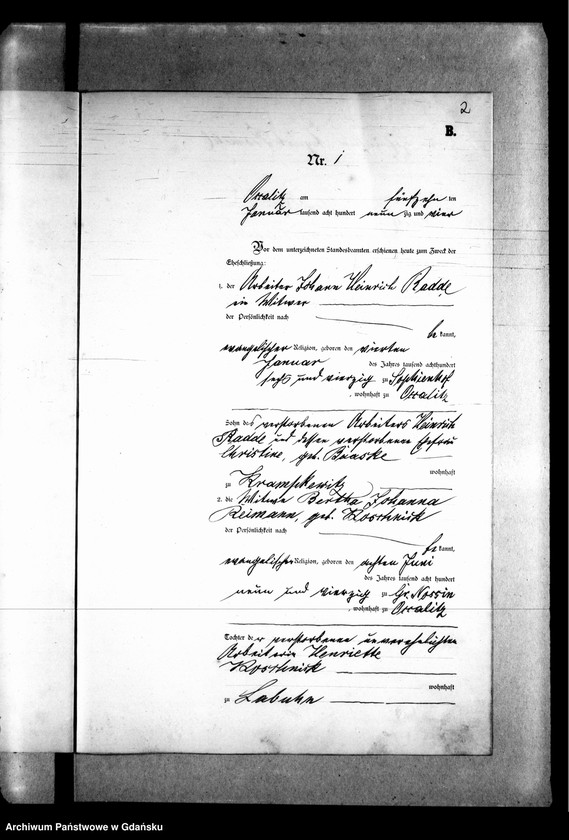 2
B.
Nr. 1
Ossalitz am fünfzehn ten
Januar tausend acht hundert neun zig und vier
Vor dem unterzeichneten Standesbeamten erschienen heute zum Zweck der
Eheschließung:
1. der Arbeiter Johann Heinrich Radde,
ein Witwer
der Persönlichkeit nach
be kannt,
evangelischer Religion, geboren den vierten
Januar des Jahres tausend achthundert
sechs und vierzig zu Sophienhof
, wohnhaft zu Ossalitz
Sohn des verstorbenen Arbeiters Heinrich
Radde und dessen verstorbene Ehefrau
Christine, geb. Baaske
wohnhaft
zu Krampkewitz
2. die Witwe Bertha Johanna
Reimann, geb. Koschnick
der Persönlichkeit nach
be kannt,
evangelischer Religion, geboren den achten Juni
des Jahres tausend acht hundert
neun und vierzig zu Gr. Nossin
, wohnhaft zu Ossalitz
Tochter der verstorbene unverehelichten
Arbeiterin Henriette
Koschnick
wohnhaft
zu Labuhn
Archiwum Państwowe w Gdańsku